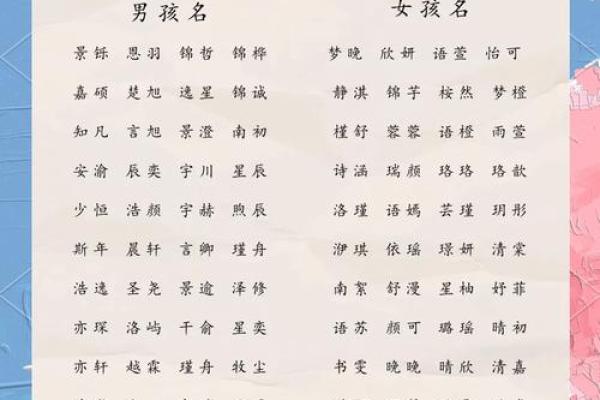 男孩名 女孩名
景铄 恩羽 锦哲 锦桦 梦晚 欣妍 语萱 怡可
嘉硕 楚旭 逸星 锦诚 静淇 锦芋 桉然 梦橙
知凡 言旭 景澄 南初 槿舒 蓉蓉 语橙 雨萱
安渝 辰奕 宇川 星辰 诗涵 瑞颜 珞珞 珞歆
少恒 浩颜 宇赫 煦辰 洛瑾 语嫣 芸瑾 玥彤
斯年 晨轩 言卿 瑾舟 洢琪 依瑶 璟妍 清棠
浩逸 圣尧 景逾 泽修 南絮 舒漫 星柚 妤菲
亦琛 洛屿 干俞 星奕 语苏 颜可 璐瑶 晴初
亦轩 越霖 瑾舟 牧尘 书雯 晚晚 晴欣 清嘉